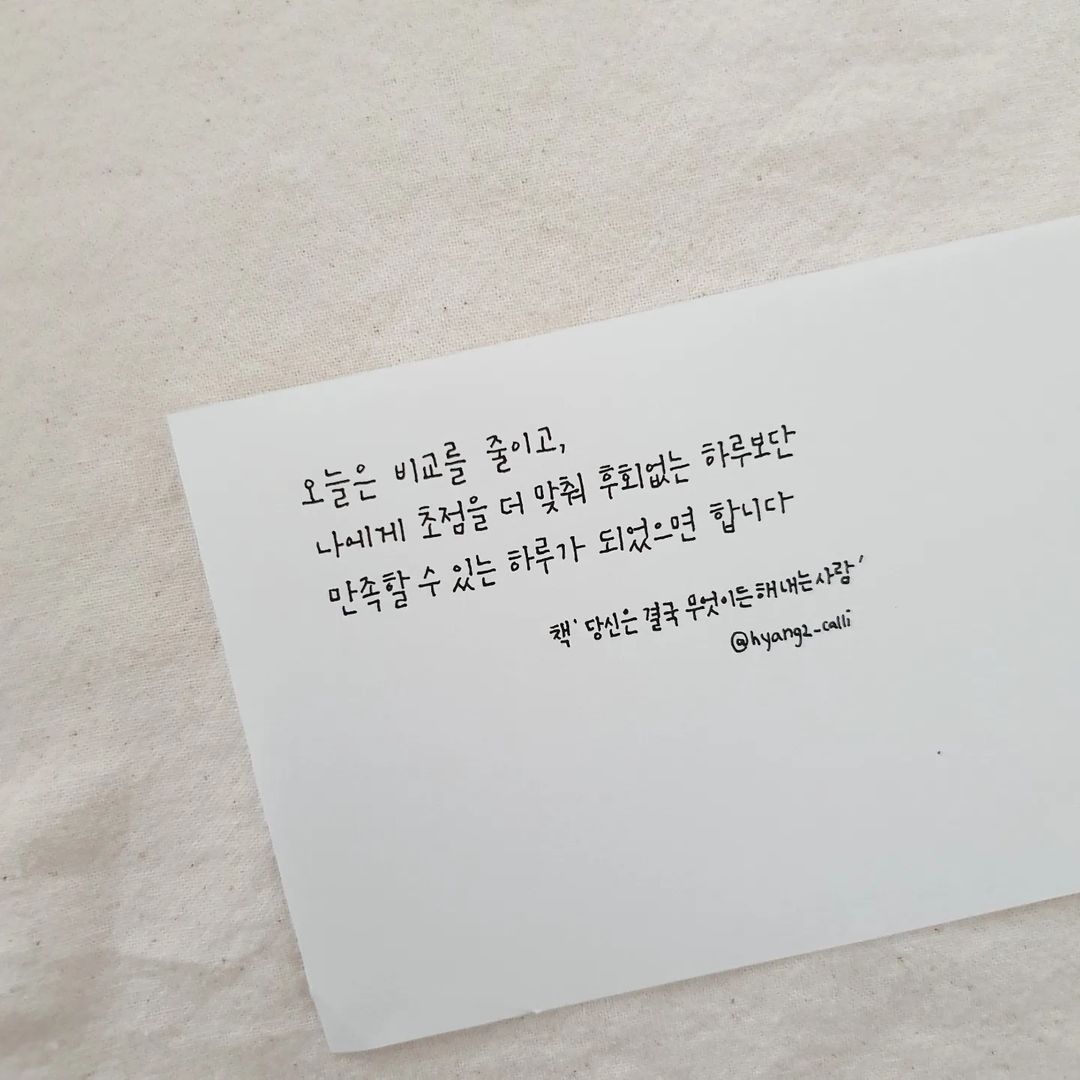 오늘은 비교를 줄이고,
나에게 초점을 더 맞춰 후회없는 하루보단
만족할 수 있는 하루가 되었으면 합니다
책 '당신은 결국 무엇이든 해내는 사람'
@hyang2_calli